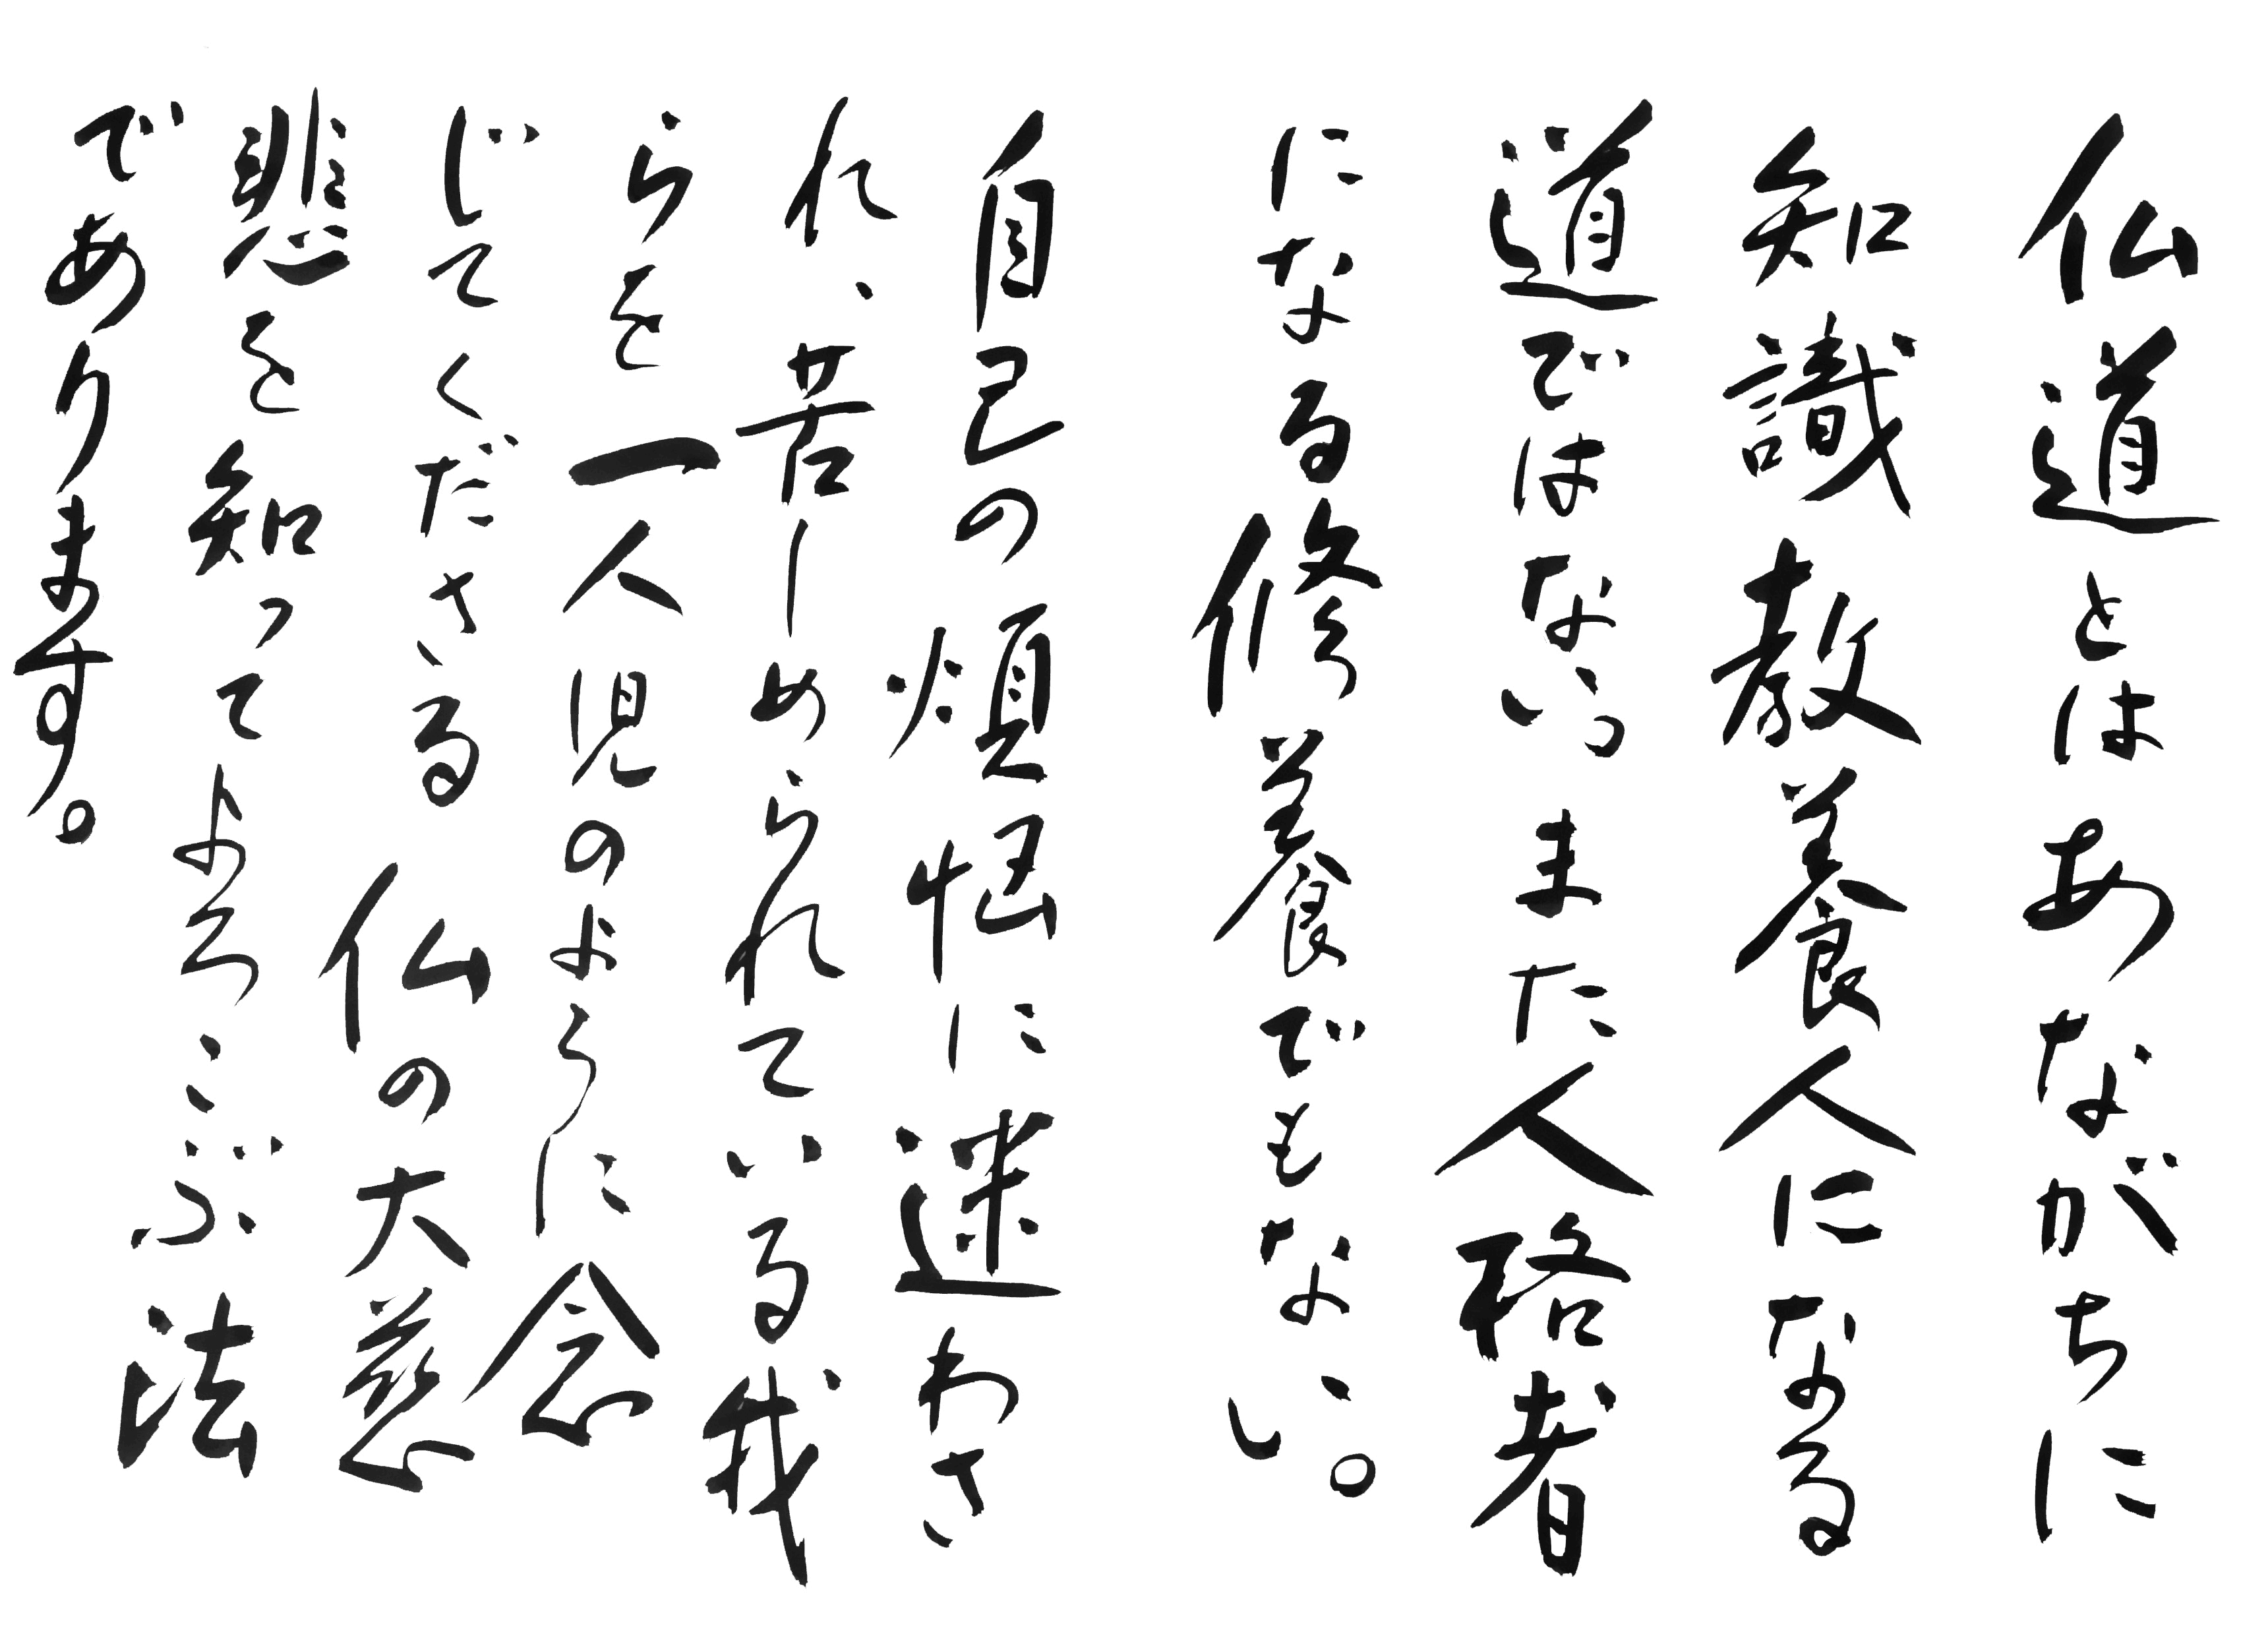 仏道とはあながちに
知識教養人になる
道ではないっまた人格者
になる修養でもない。
自己の煩悩に迷わさ
れ、苦しめられている我
らを一人児のように念
じてくださる仏の大慈
悲を知ってよろこぶ法
であります。